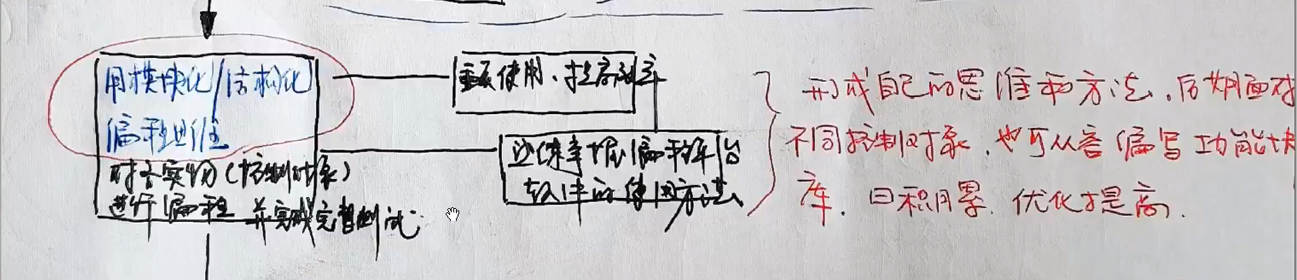 用模块化/结构化
编程思维
对各实物(控制对象)
进行编程 并完成完整测试
重复使用,提高效率
边练掌握编程平台
软件的使用方法
形成自己的思维和方法,后期面对
不同控制对象,也可从容编写功能块
库,日积月累,优化提高.